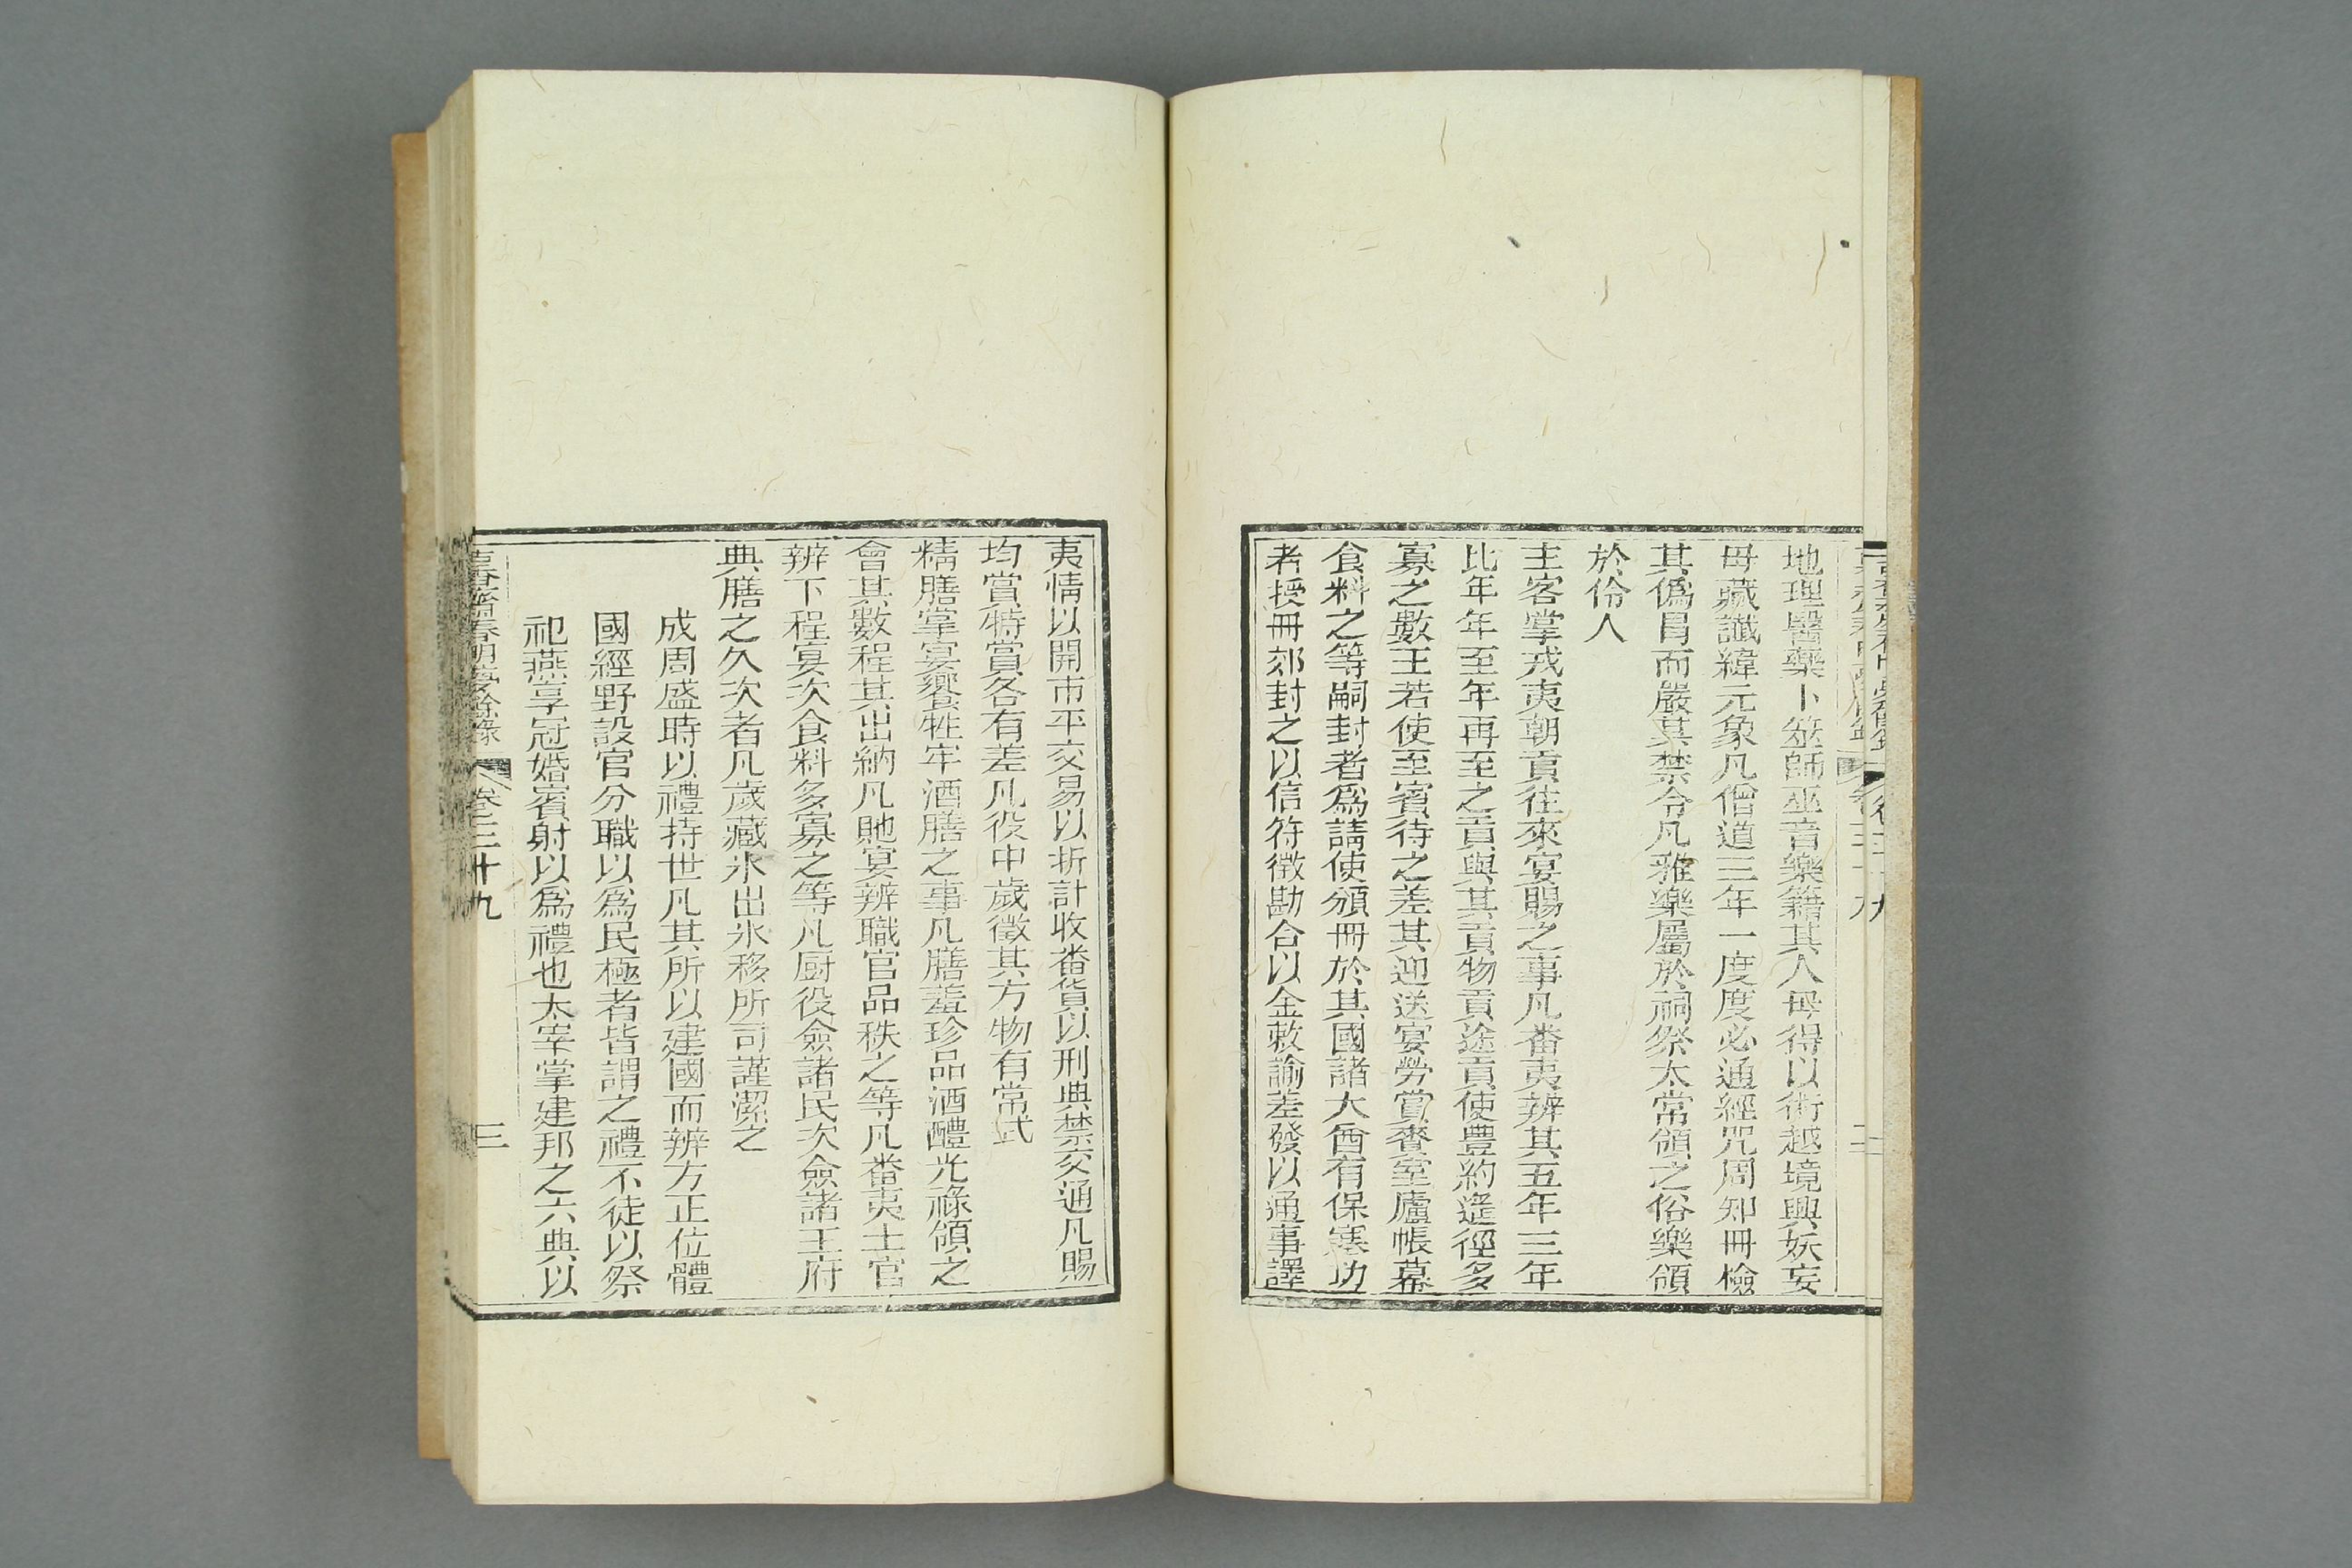 地理醫藥卜筮師巫音樂籍其人毋得以術越境興妖妄
毋藏讖緯元象凡僧道三年一度度必通經咒周知冊檢
其僞冒而嚴其禁令凡雅樂屬於祠祭太常領之俗樂領
於伶人
主客掌戎夷朝貢往來宴賜之事凡番夷辨其五年三年
比年年至年再至之貢與其貢物貢途貢使豊約遲徑多
寡之數王若使至賓待之差其迎送宴勞賞賚室廬帳幕
食料之等嗣封者爲請使頒冊於其國諸大酋有保塞功
者授冊郊封之以信符徵勘合以金敕諭差發以通事譯
夷情以開市平交易以折計收番貨以刑典禁交通凡賜
均賞特賞各有差凡役中歲徵其方物有常式
精膳掌宴饗牲牢酒膳之事凡膳羞珍品酒醴光祿領之
會其數程其出納凡賜宴辨職官品秩之等凡番夷土官
辨下程宴次食料多寡之等凡厨役僉諸民次僉諸王府
典膳之久次者凡歲藏氷出氷移所司謹潔之
成周盛時以禮持世凡其所以建國而辨方正位體
國經野設官分職以爲民極者皆謂之禮不徒以祭
祀燕享冠婚賓射以爲禮也太宰掌建邦之六典以
春明夢餘錄
卷三十九
三